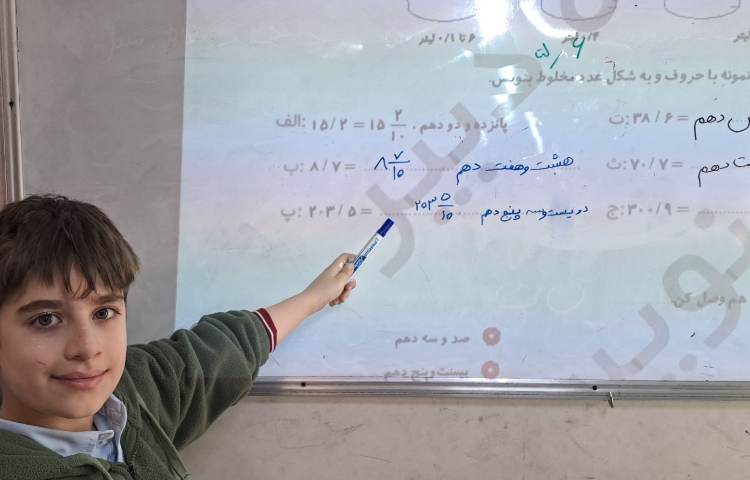 ۶ تا ۰/۱ لیتر
۶/۵
نمونه با حروف و به شکل عدد مخلوط بنویس.
الف: ۱۵/۲ = ۱۵ ۲/۱۰ پانزده و دو دهم.
ت: ۳۸/۶ = دهم
ب: ۸/۷ = ۸ ۷/۱۰ هشت و هفت دهم
ث: ۷۰/۷ = دهم
پ: ۲۰۳/۵ = ۲۰۳ ۵/۱۰ دویست و سه پنج دهم
ج: ۳۰۰/۹ =
هم وصل کن.
صد و سه دهم
بیست و پنج دهم